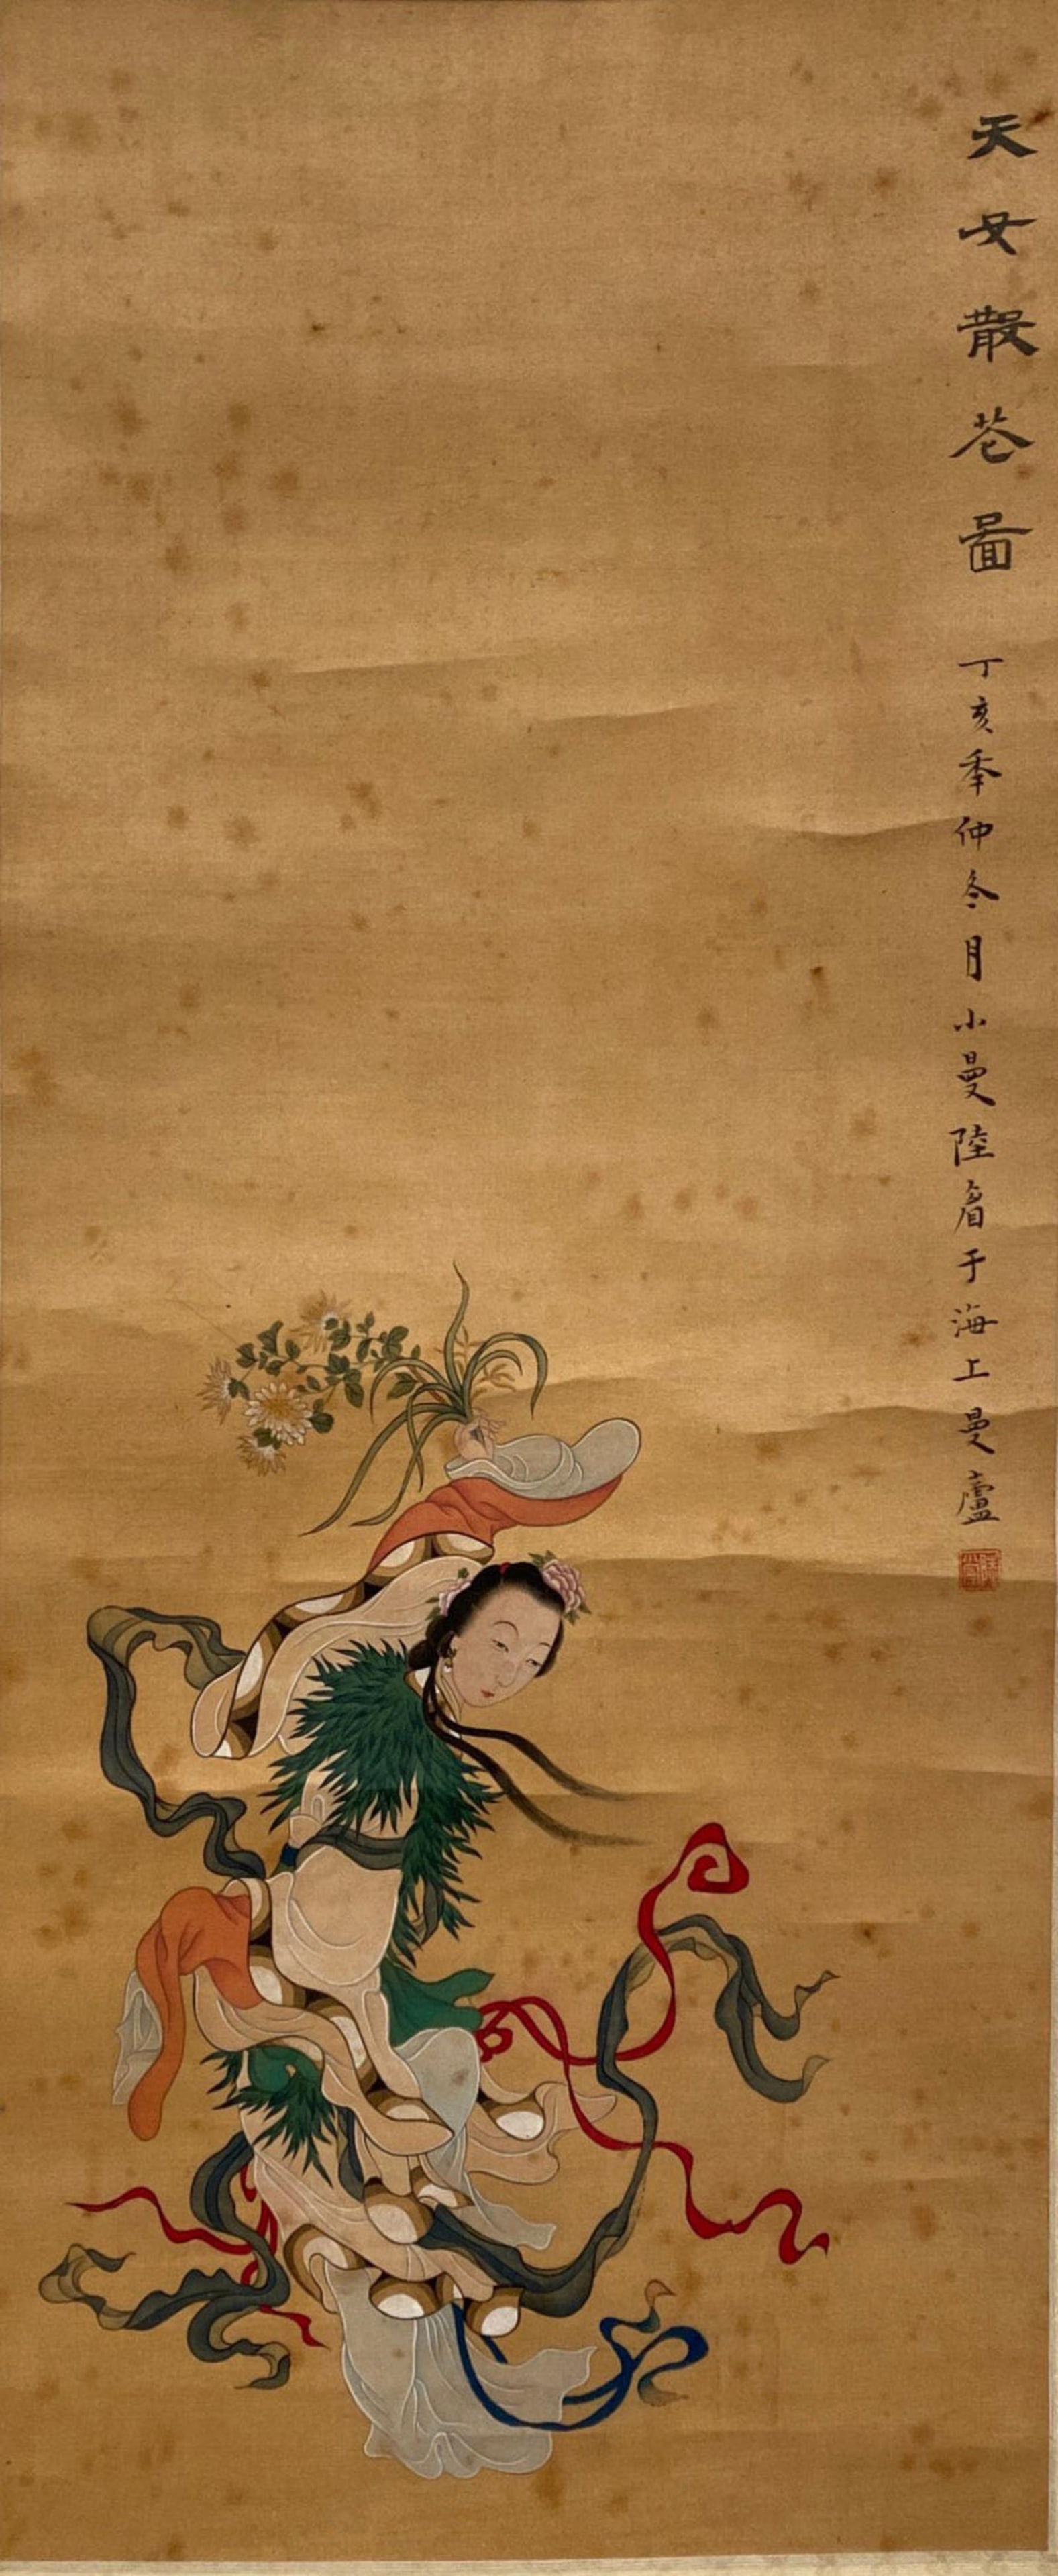 天女散花圖 丁亥季仲冬月小曼陸眉于海上曼廬